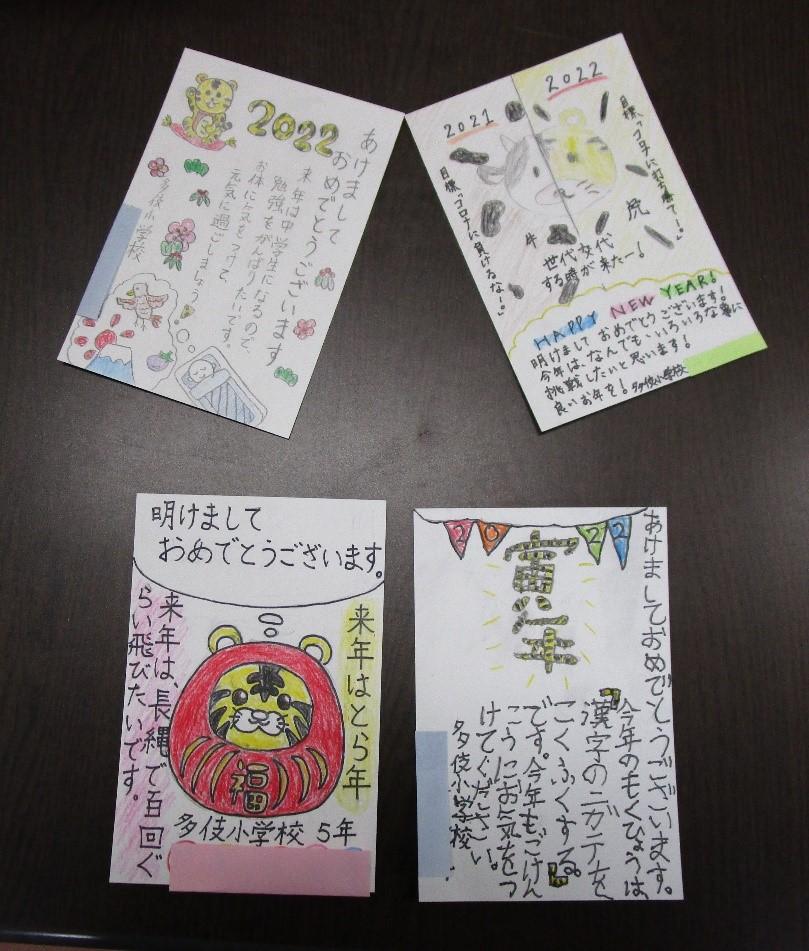 2022
あけまして
おめでとうございます
来年は中学生になるので、
勉強をがんばりたいです。
お体に気をつけて、
元気に過ごしましょう。
多伎小学校
2021
2022
目標「コロナに負けるな!」
目標「コロナに打ち勝て!」
牛
虎
世代交代
する時が来たー!
HAPPY NEW YEAR!
明けまして おめでとうございます!
今年は、なんでも、いろいろな事に
挑戦したいと思います!
良いお年を! 多伎小学校
明けまして
おめでとうございます。
来年はとら年
来年は、長縄で百回ぐ
らい飛びたいです。
福
多伎小学校 5年
2022
あけましておめでとうございます。
寅年
今年のもくひょうは、
『漢字のニガテを
こくふくする』
です。今年もごけん
こうにお気をつ
けてください。
多伎小学校